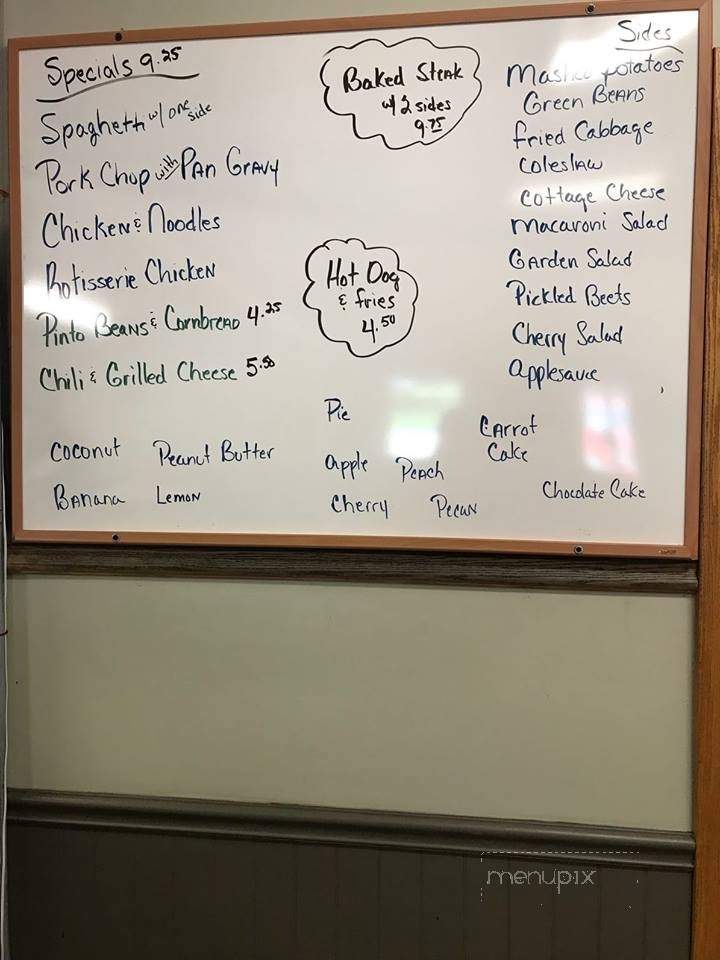 Specials 9.25
Spaghetti w/ one side
Pork Chop with Pan Gravy
Chicken & Noodles
Rotisserie Chicken
Pinto Beans & Cornbread 4.25
Chili & Grilled Cheese 5.50
Baked Steak
w/ 2 sides
9.75
Hot Dog
& fries
4.50
Sides
Mashed potatoes
Green Beans
Fried Cabbage
Coleslaw
Cottage Cheese
Macaroni Salad
Garden Salad
Pickled Beets
Cherry Salad
Applesauce
Pie
Coconut Peanut Butter
Banana Lemon
apple Peach
Cherry Pecan
Carrot
Cake
Chocolate Cake
menupix